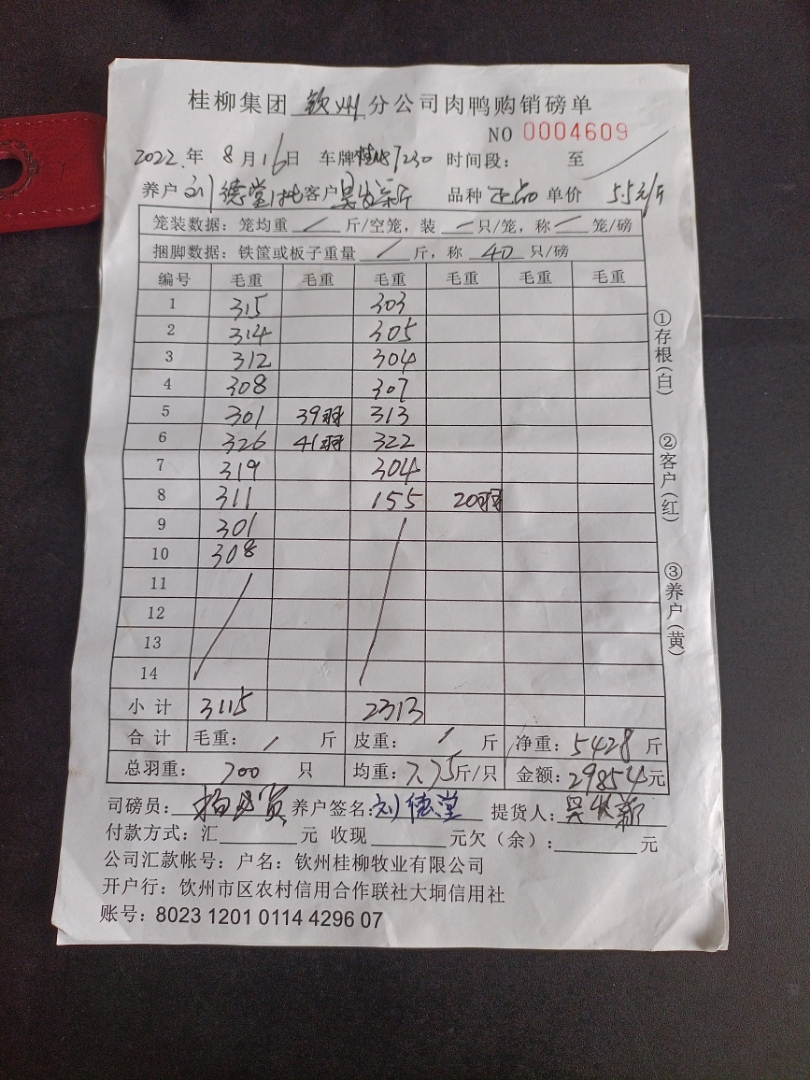 桂柳集团 钦州 分公司肉鸭购销磅单
NO 0004609
2022 年 8 月 16 日 车牌 7230 时间段: 至
养户 刘德堂 客户 品种 正品 单价 5.5元/斤
笼装数据: 笼均重 / 斤/空笼, 装 只/笼, 称 笼/磅
捆脚数据: 铁筐或板子重量 / 斤, 称 40 只/磅
编号 毛重 毛重 毛重 毛重 毛重 毛重
1 315 303
2 314 305
3 312 304
4 308 307
5 301 39羽 313
6 326 41羽 322
7 319 304
8 311 155 20羽
9 301
10 308
11
12
13
14
小计 3115 2313
合计 毛重: / 斤 皮重: / 斤 净重: 5428 斤
总羽重: 700 只 均重: 7.75斤/只 金额: 29854元
司磅员: 养户签名: 刘德堂 提货人:
付款方式: 汇 元 收现 元欠(余): 元
公司汇款帐号: 户名: 钦州桂柳牧业有限公司
开户行: 钦州市区农村信用合作联社大垌信用社
账号: 8023 1201 0114 4296 07
①存根(白)
②客户(红)
③养户(黄)